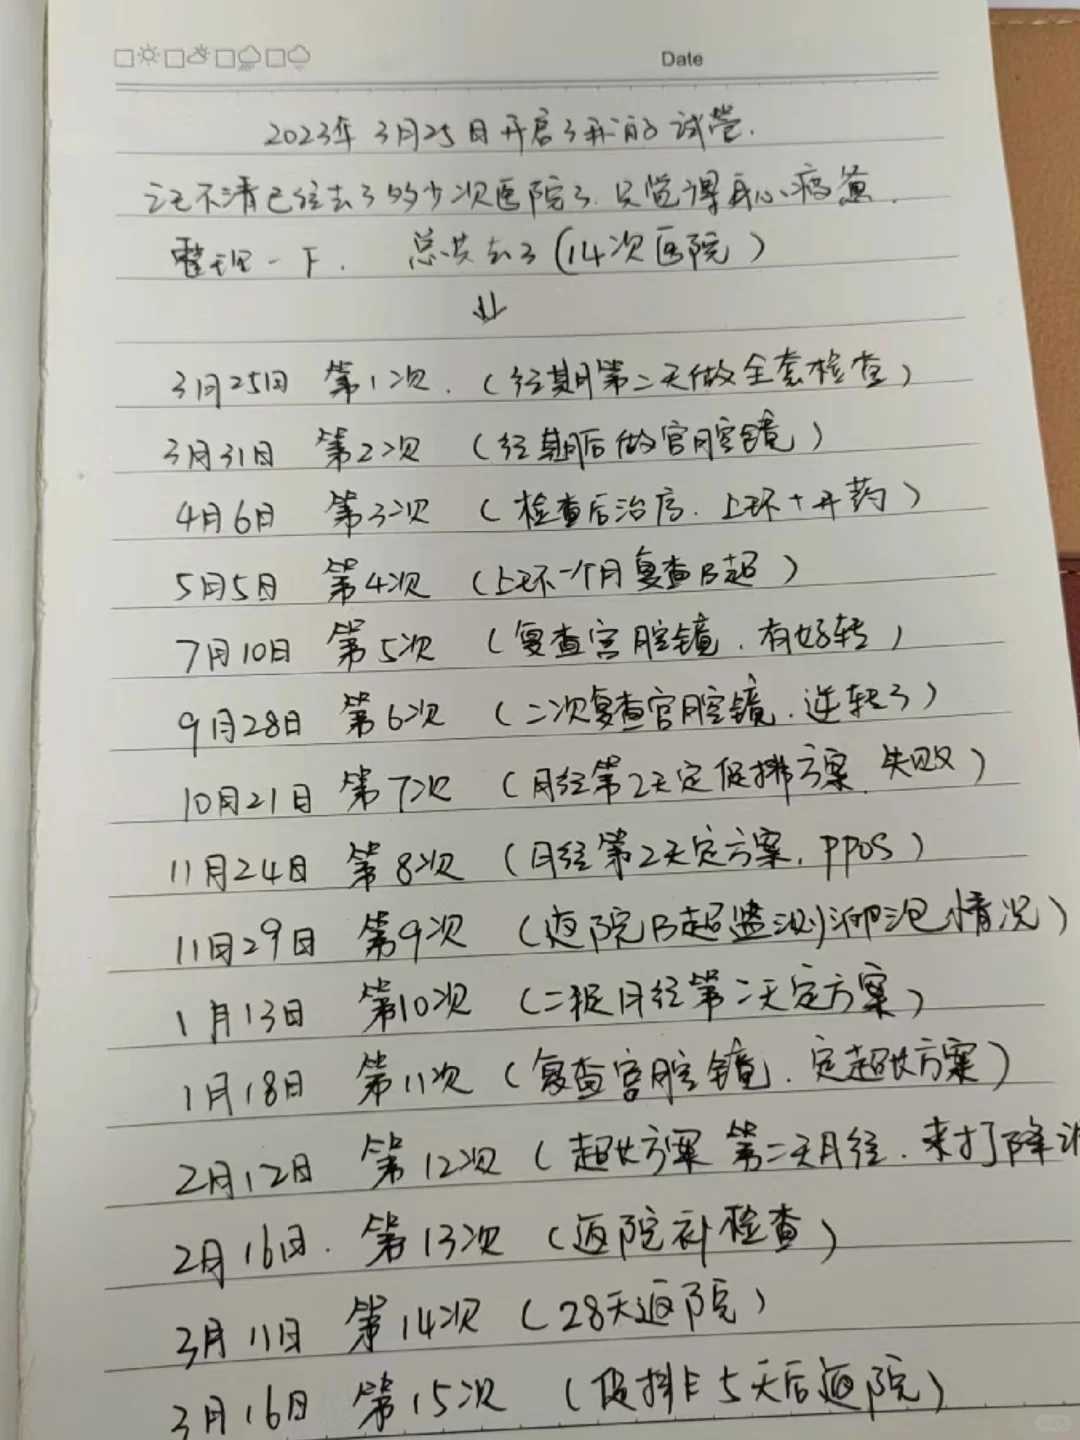 Date
2023年3月25日开启了我的试管.
记不清已经去了多少次医院了.只觉得身心疲惫.
整理一下. 总共去了(14次医院)
↓
3月25日 第1次.(经期第二天做全套检查)
3月31日 第2次 (经期后做宫腔镜)
4月6日 第3次 (检查后治疗.上环+开药)
5月5日 第4次 (上环一个月复查B超)
7月10日 第5次 (复查宫腔镜.有好转)
9月28日 第6次 (二次复查宫腔镜.逆转了)
10月21日 第7次 (月经第2天定促排方案.失败)
11月24日 第8次 (月经第2天定方案.PPOS)
11月29日 第9次 (返院B超监测卵泡情况)
1月13日 第10次 (二促月经第二天定方案)
1月18日 第11次 (复查宫腔镜.定超长方案)
2月12日 第12次 (超长方案 第二天月经.来打降
2月16日. 第13次 (返院补检查)
3月11日 第14次 (28天返院)
3月16日 第15次 (促排5天后返院)